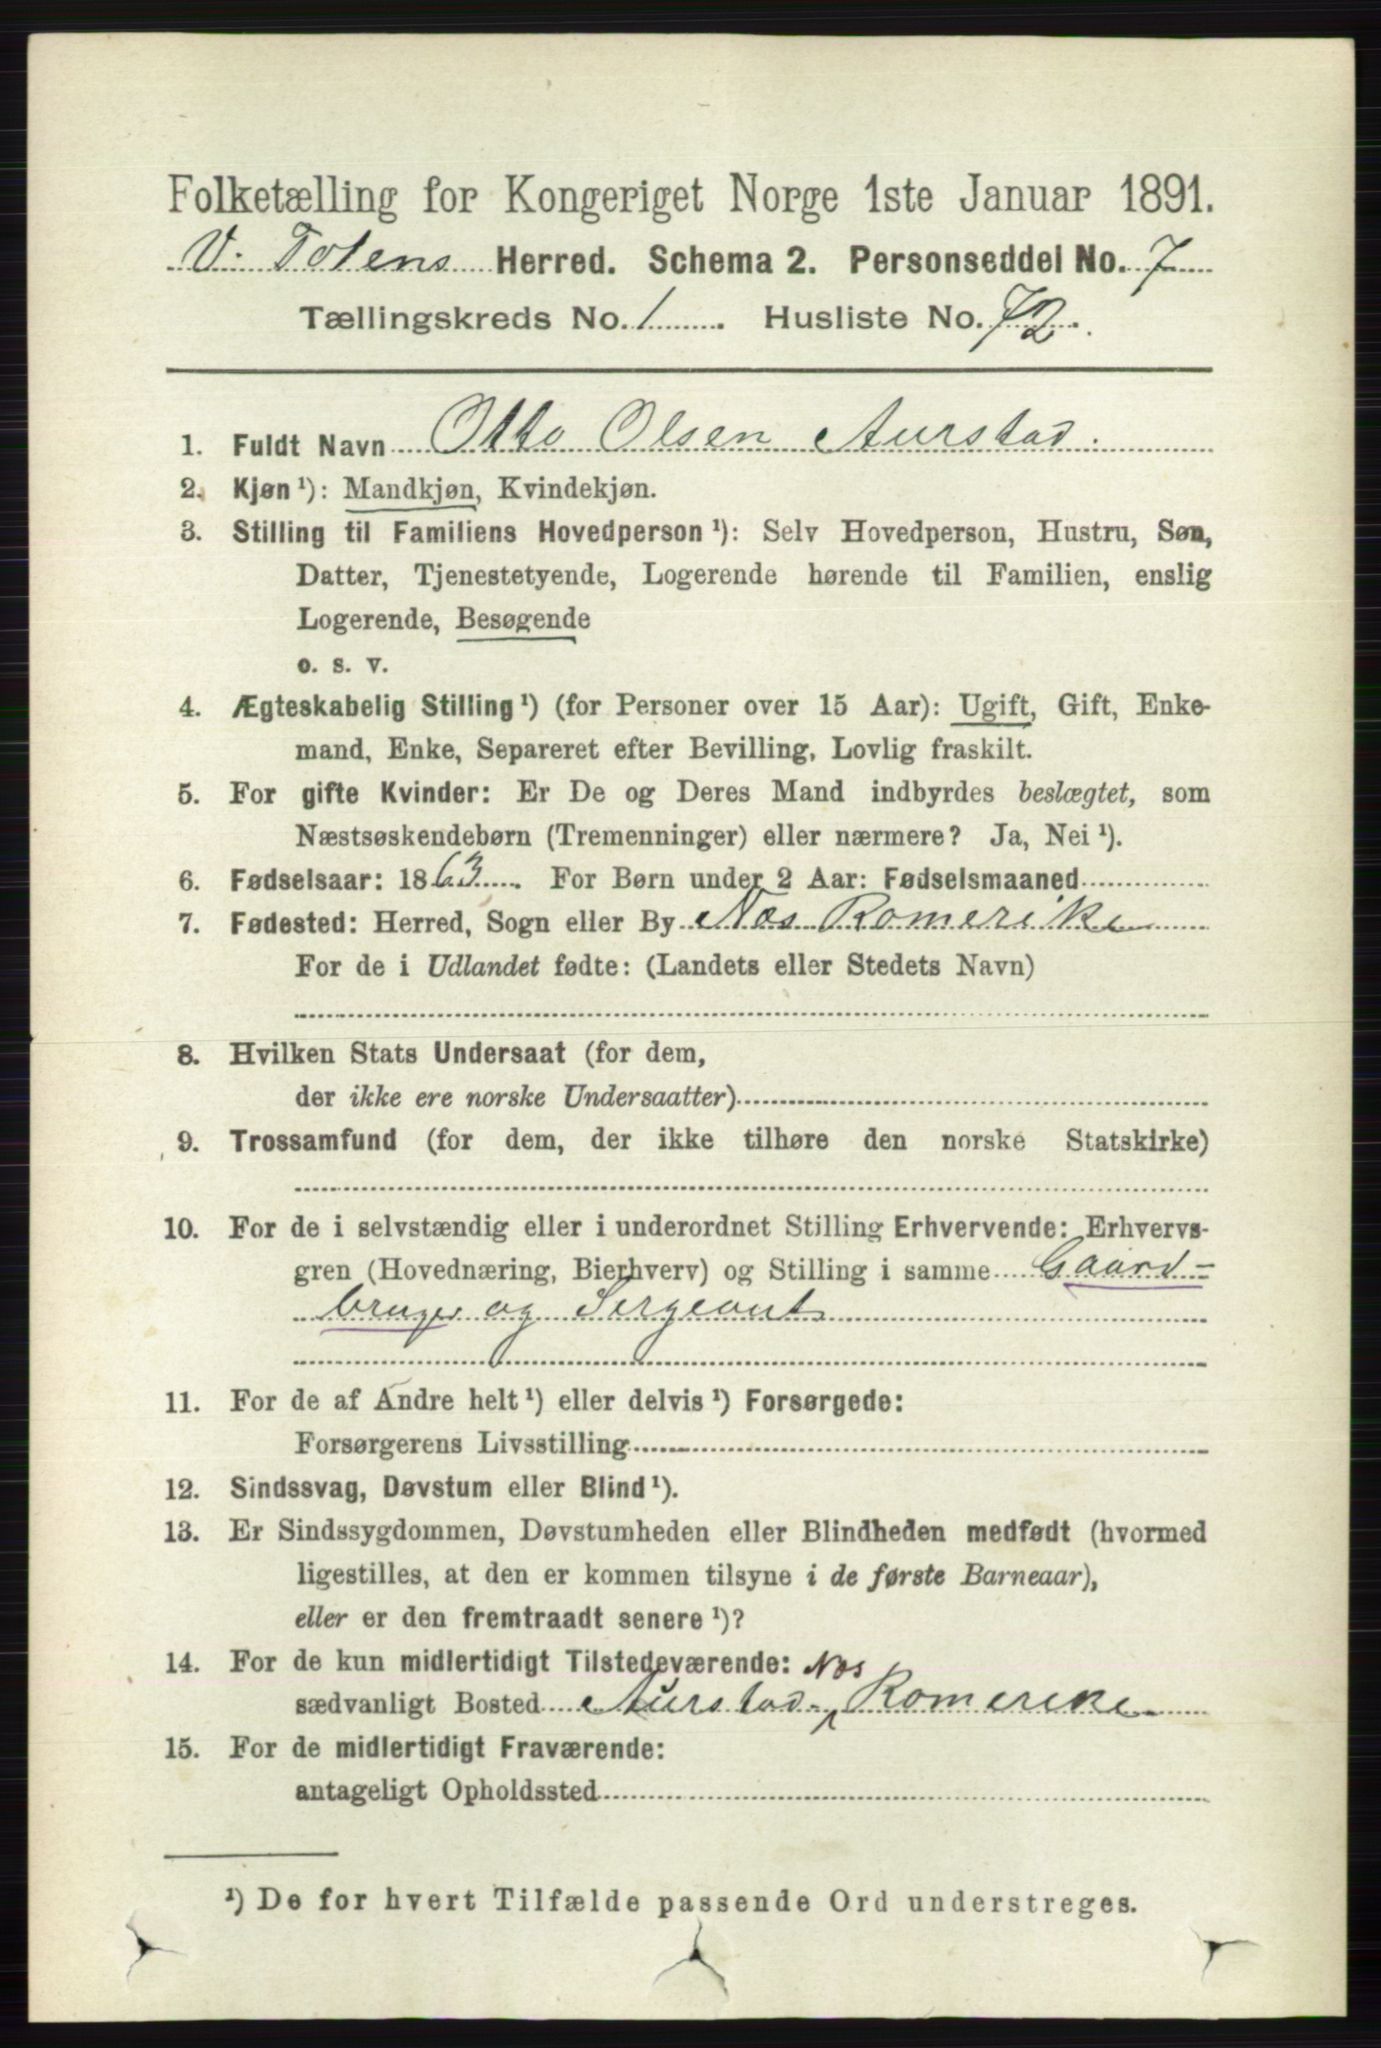 Folketælling for Kongeriget Norge 1ste Januar 1891.
V. Totens Herred. Schema 2. Personseddel No. 7
Tællingskreds No. 1. Husliste No. 72.
1. Fuldt Navn Otto Olsen Aurstad.
2. Kjøn ¹): Mandkjøn, Kvindekjøn.
3. Stilling til Familiens Hovedperson ¹): Selv Hovedperson, Hustru, Søn,
Datter, Tjenestetyende, Logerende hørende til Familien, enslig
Logerende, Besøgende
o. s. v.
4. Ægteskabelig Stilling ¹) (for Personer over 15 Aar): Ugift, Gift, Enke-
mand, Enke, Separeret efter Bevilling, Lovlig fraskilt.
5. For gifte Kvinder: Er De og Deres Mand indbyrdes beslægtet, som
Næstsøskendebørn (Tremenninger) eller nærmere? Ja, Nei ¹).
6. Fødselsaar: 1863. For Børn under 2 Aar: Fødselsmaaned
7. Fødested: Herred, Sogn eller By Næs Romerike
For de i Udlandet fødte: (Landets eller Stedets Navn)
8. Hvilken Stats Undersaat (for dem,
der ikke ere norske Undersaatter)
9. Trossamfund (for dem, der ikke tilhøre den norske Statskirke)
10. For de i selvstændig eller i underordnet Stilling Erhvervende: Erhvervs-
gren (Hovednæring, Bierhverv) og Stilling i samme Gaard-
bruger og Sergeant
11. For de af Andre helt ¹) eller delvis ¹) Forsørgede:
Forsørgerens Livsstilling
12. Sindssvag, Døvstum eller Blind ¹).
13. Er Sindssygdommen, Døvstumheden eller Blindheden medfødt (hvormed
ligestilles, at den er kommen tilsyne i de første Barneaar),
eller er den fremtraadt senere ¹)?
14. For de kun midlertidigt Tilstedeværende: Næs
sædvanligt Bosted Aurstad Romerike
15. For de midlertidigt Fraværende:
antageligt Opholdssted
¹) De for hvert Tilfælde passende Ord understreges.